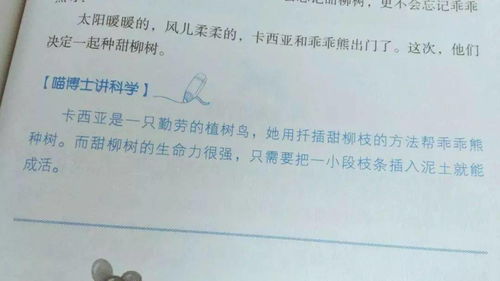 忘记甜柳树，更不会忘记乖乖
太阳暖暖的，风儿柔柔的，卡西亚和乖乖熊出门了。这次，他们
决定一起种甜柳树。
【喵博士讲科学】
卡西亚是一只勤劳的植树鸟，她用扦插甜柳枝的方法帮乖乖熊
种树。而甜柳树的生命力很强，只需要把一小段枝条插入泥土就能
成活。